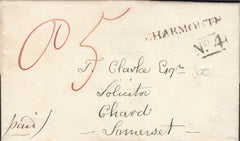 P 5
CHARMOUTH
No. 4
T. Clarke Esqr
Solicitor
Chard
Somerset
paid